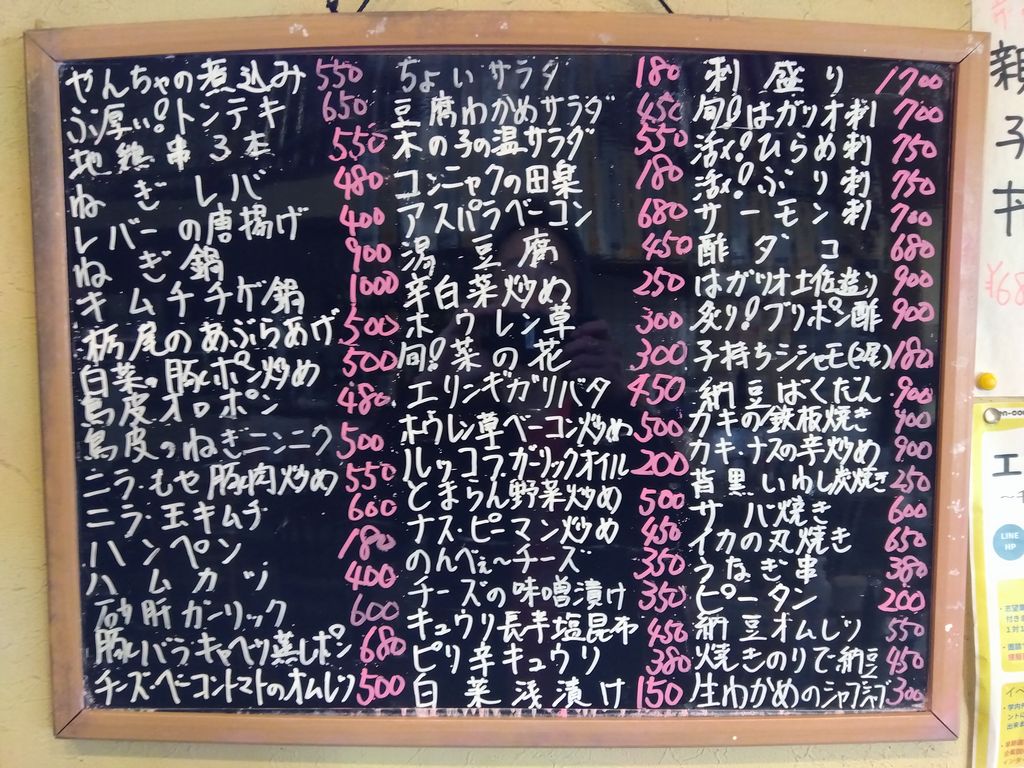 やんちゃの煮込み 550
ぶ厚い!トンテキ 650
地鶏串3本 550
ねぎレバ 480
レバーの唐揚げ 400
ねぎ鍋 900
キムチチゲ鍋 1000
栃尾のあぶらあげ 500
白菜・豚ポン炒め 500
鳥皮オロポン 480
鳥皮っねぎニンニク 500
ニラ・もや豚肉炒め 550
ニラ・玉キムチ 600
ハンペン 180
ハムカツ 400
砂肝ガーリック 600
豚バラキャベツ蒸しポン 680
チーズ・ベーコントマトのオムレツ 500
ちょいサラダ 180
豆腐わかめサラダ 450
木の子の温サラダ 550
コンニャクの田楽 180
アスパラベーコン 680
湯豆腐 450
辛白菜炒め 250
ホウレン草 300
旬!菜の花 300
エリンギガリバタ 450
ホウレン草ベーコン炒め 500
ルッコラ・ガーリックオイル 200
とまらん野菜炒め 500
ナス・ピーマン炒め 450
のんべぇ〜チーズ 350
チーズの味噌漬け 350
キュウリ長芋塩昆布 450
ピリ辛キュウリ 380
白菜浅漬け 150
刺盛り 1700
旬!はガツオ刺 700
活〆!ひらめ刺 750
活〆!ぶり刺 750
サーモン刺 700
酢ダコ 680
はガツオ土佐造り 900
炙り!ブリポン酢 900
子持ちシシャモ(2尾) 180
納豆ばくだん 900
カキの鉄板焼き 900
カキ・ナスの辛炒め 900
背黒いわし炭焼き 250
サバ焼き 600
イカの丸焼き 650
うなぎ串 380
ピータン 200
納豆オムレツ 550
焼きのりで納豆 450
生わかめのシャブシャブ 300
親子丼
¥68
LINE
HP